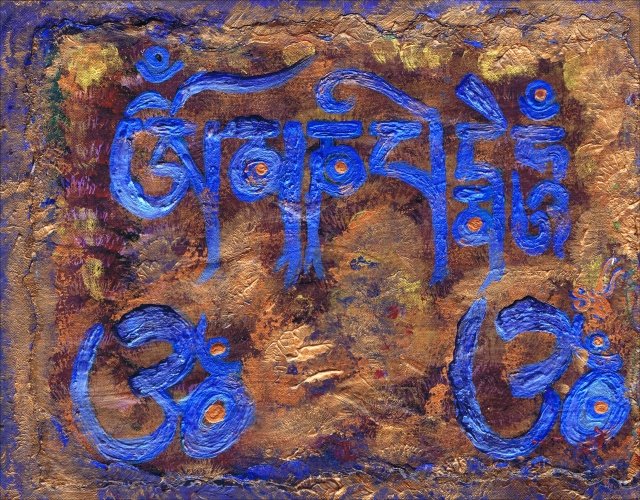 ཨོཾ མ ཎི པ དྨེ ཧཱུྃ
ॐ ॐ